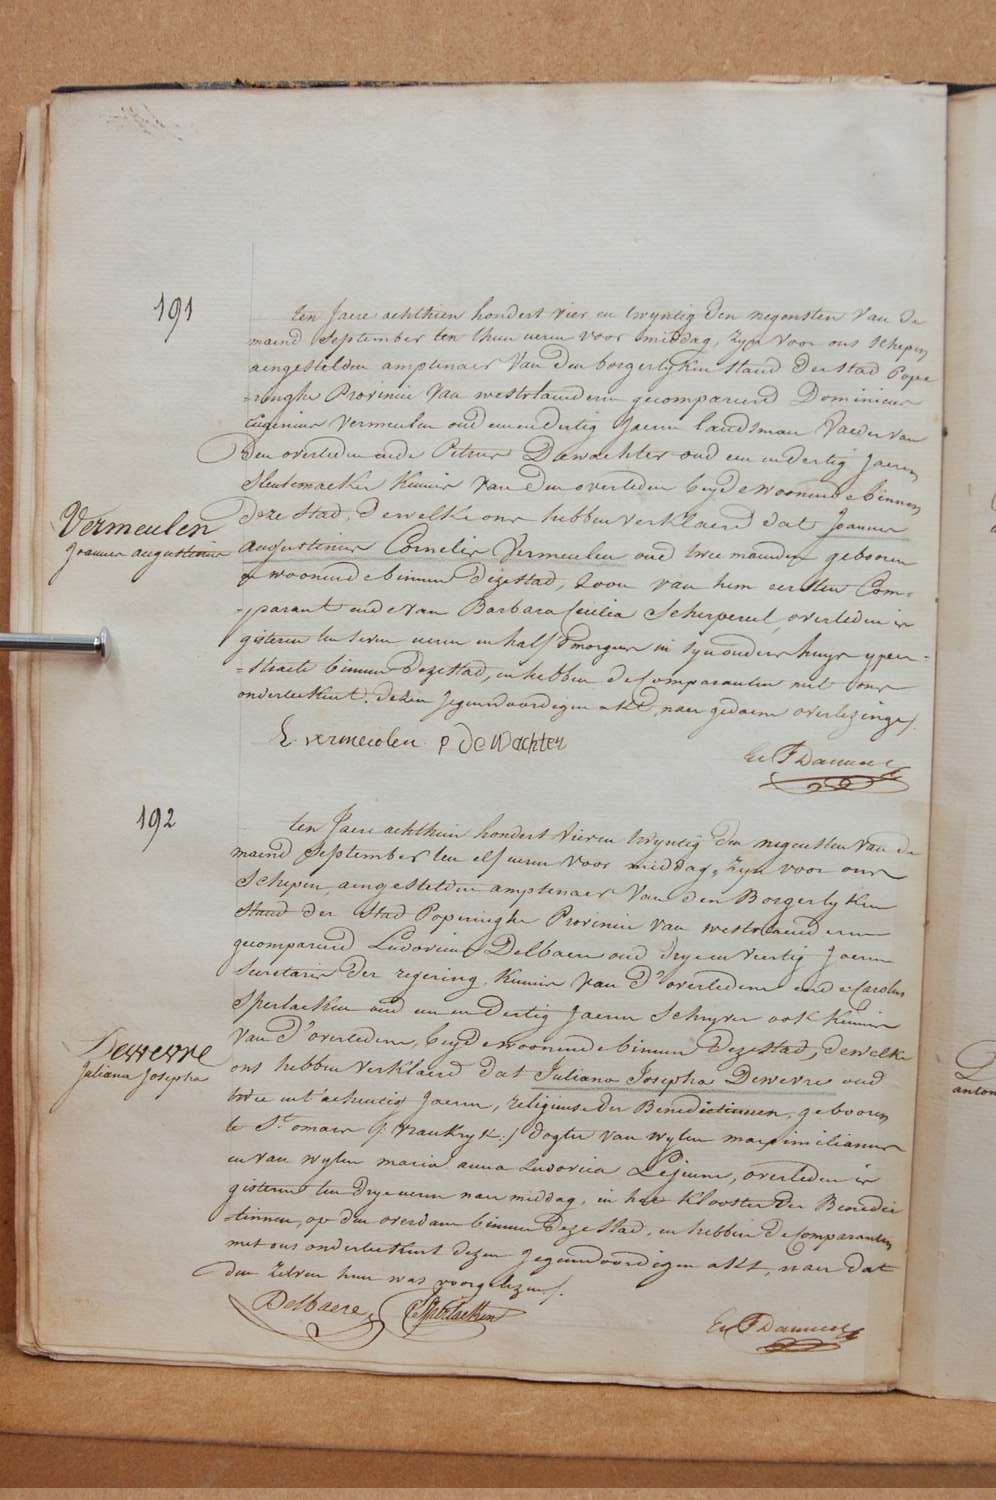 191
ten Jaere achthien hondert vier en twyntig den negensten van de
maend September ten thien ueren voor middag, zyn voor ons schepen
aengestelden amptenaer van den borgerlyken stand der stad Pope
=ringhe Provincie van westvlaenderen gecompareerd Dominicus
Eugenius Vermeulen oud eenendertig Jaeren landsman Vaeder van
den overleden ende Petrus Dewachter oud een en dertig Jaeren
Sleutemaeker kennis van den overleden beyde woonende binnen
Vermeulen
deze stad, dewelke ons hebben verklaerd dat Joannes
Joannes augustinus
augustinus Cornelis Vermeulen oud twee maenden geboren
en woonende binnen deze stad, zoon van hem eersten Com=
=parant ende van Barbara Cecilia Scherpereel, overleden is
gisteren ten seven ueren en half smorgens in syn ouders huys yper=
=straete binnen deze stad, en hebben de Comparanten met ons
onderteekent dezen jegenwoordigen akt, naer gedaene overlezinge/.
E. vermeulen p de Wachter
192
ten Jaere achthien hondert vier en twyntig den negensten van de
maend September ten elf ueren voor middag, zyn voor ons
Schepen, aengestelden amptenaer van den Borgerlyken
Stand der Stad Poperinghe Provincie van westvlaenderen
gecompareerd Ludovicus Delbaere oud dryenveertig Jaeren
Secretaris der regering, kennis van d'overledene ende Carolus
Sperlaeken oud een en dertig Jaeren Schryver ook kennis
van d'overledene, beyde woonende binnen deze stad, dewelke
Dewevre
ons hebben verklaerd dat Juliana Josepha Dewevre oud
Juliana Josepha
twee ent'achentig Jaeren, religieuse der Benedictinnen, geboren
te St omaer /: vrankryk :/ dogter van wylen maximilianus
en van wylen maria anna Ludovica Lejeune, overleden is
gisteren ten drye ueren naer middag, in het klooster der Benedic
=tinnen, op den overdam binnen deze stad, en hebben de Comparanten
met ons onderteekent dezen jegenwoordigen akt, naer dat
den zelven hun was voorgelezen/.
Delbaere